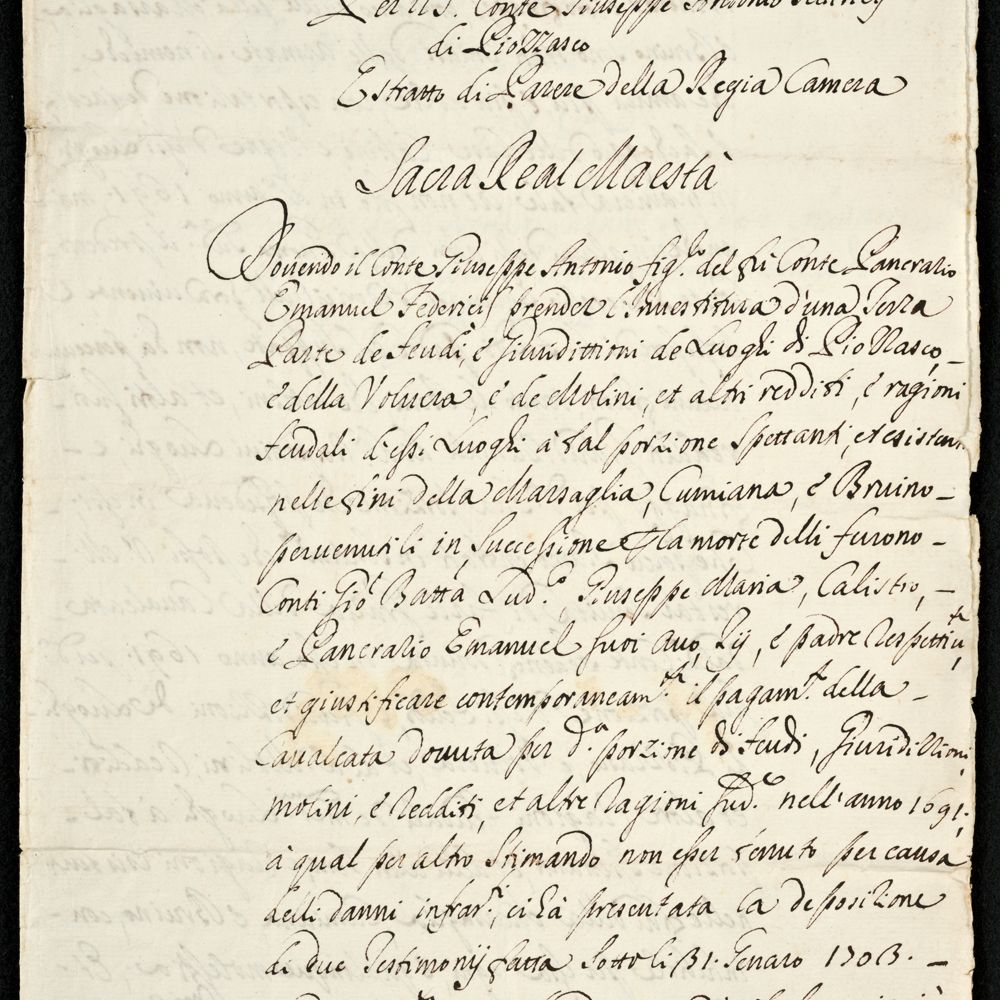 Per il S. Conte Giuseppe Antonio
di Piozzasco
Estratto di Parere della Regia Camera
Sacra Real Maestà
Dovendo il Conte Giuseppe Antonio fig.lo del fù Conte Pancrazio
Emanuel Federici prender l'Investitura d'una Terza
Parte de feudi, è Giuridittioni de Luoghi di Piozzasco, –
è della Volvera, è de Molini, et altri redditi, è ragioni
feudali d'essi Luoghi à tal porzione spettanti, et esistenti
nelle fini della Marsaglia, Cumiana, è Bruino –
pervenutili in successione p la morte delli furono –
Conti Gio. Batta Lud.o, Giuseppe Maria, Calistro, –
è Pancrazio Emanuel suoi avo, zij, è padre respettiv.te,
et giustificare contemporaneam.te il pagam.to della –
Cavalcata dovuta per d.a porzione di feudi, Giuridizzioni,
molini, è redditi, et altre ragioni sud.e nell'anno 1691.
à qual per altro stimando non esser tenuto per causa
delli danni infrar.i, ci hà presentata la deposizione
di due Testimonij fatta sotto li 31. Genaro 1703. –